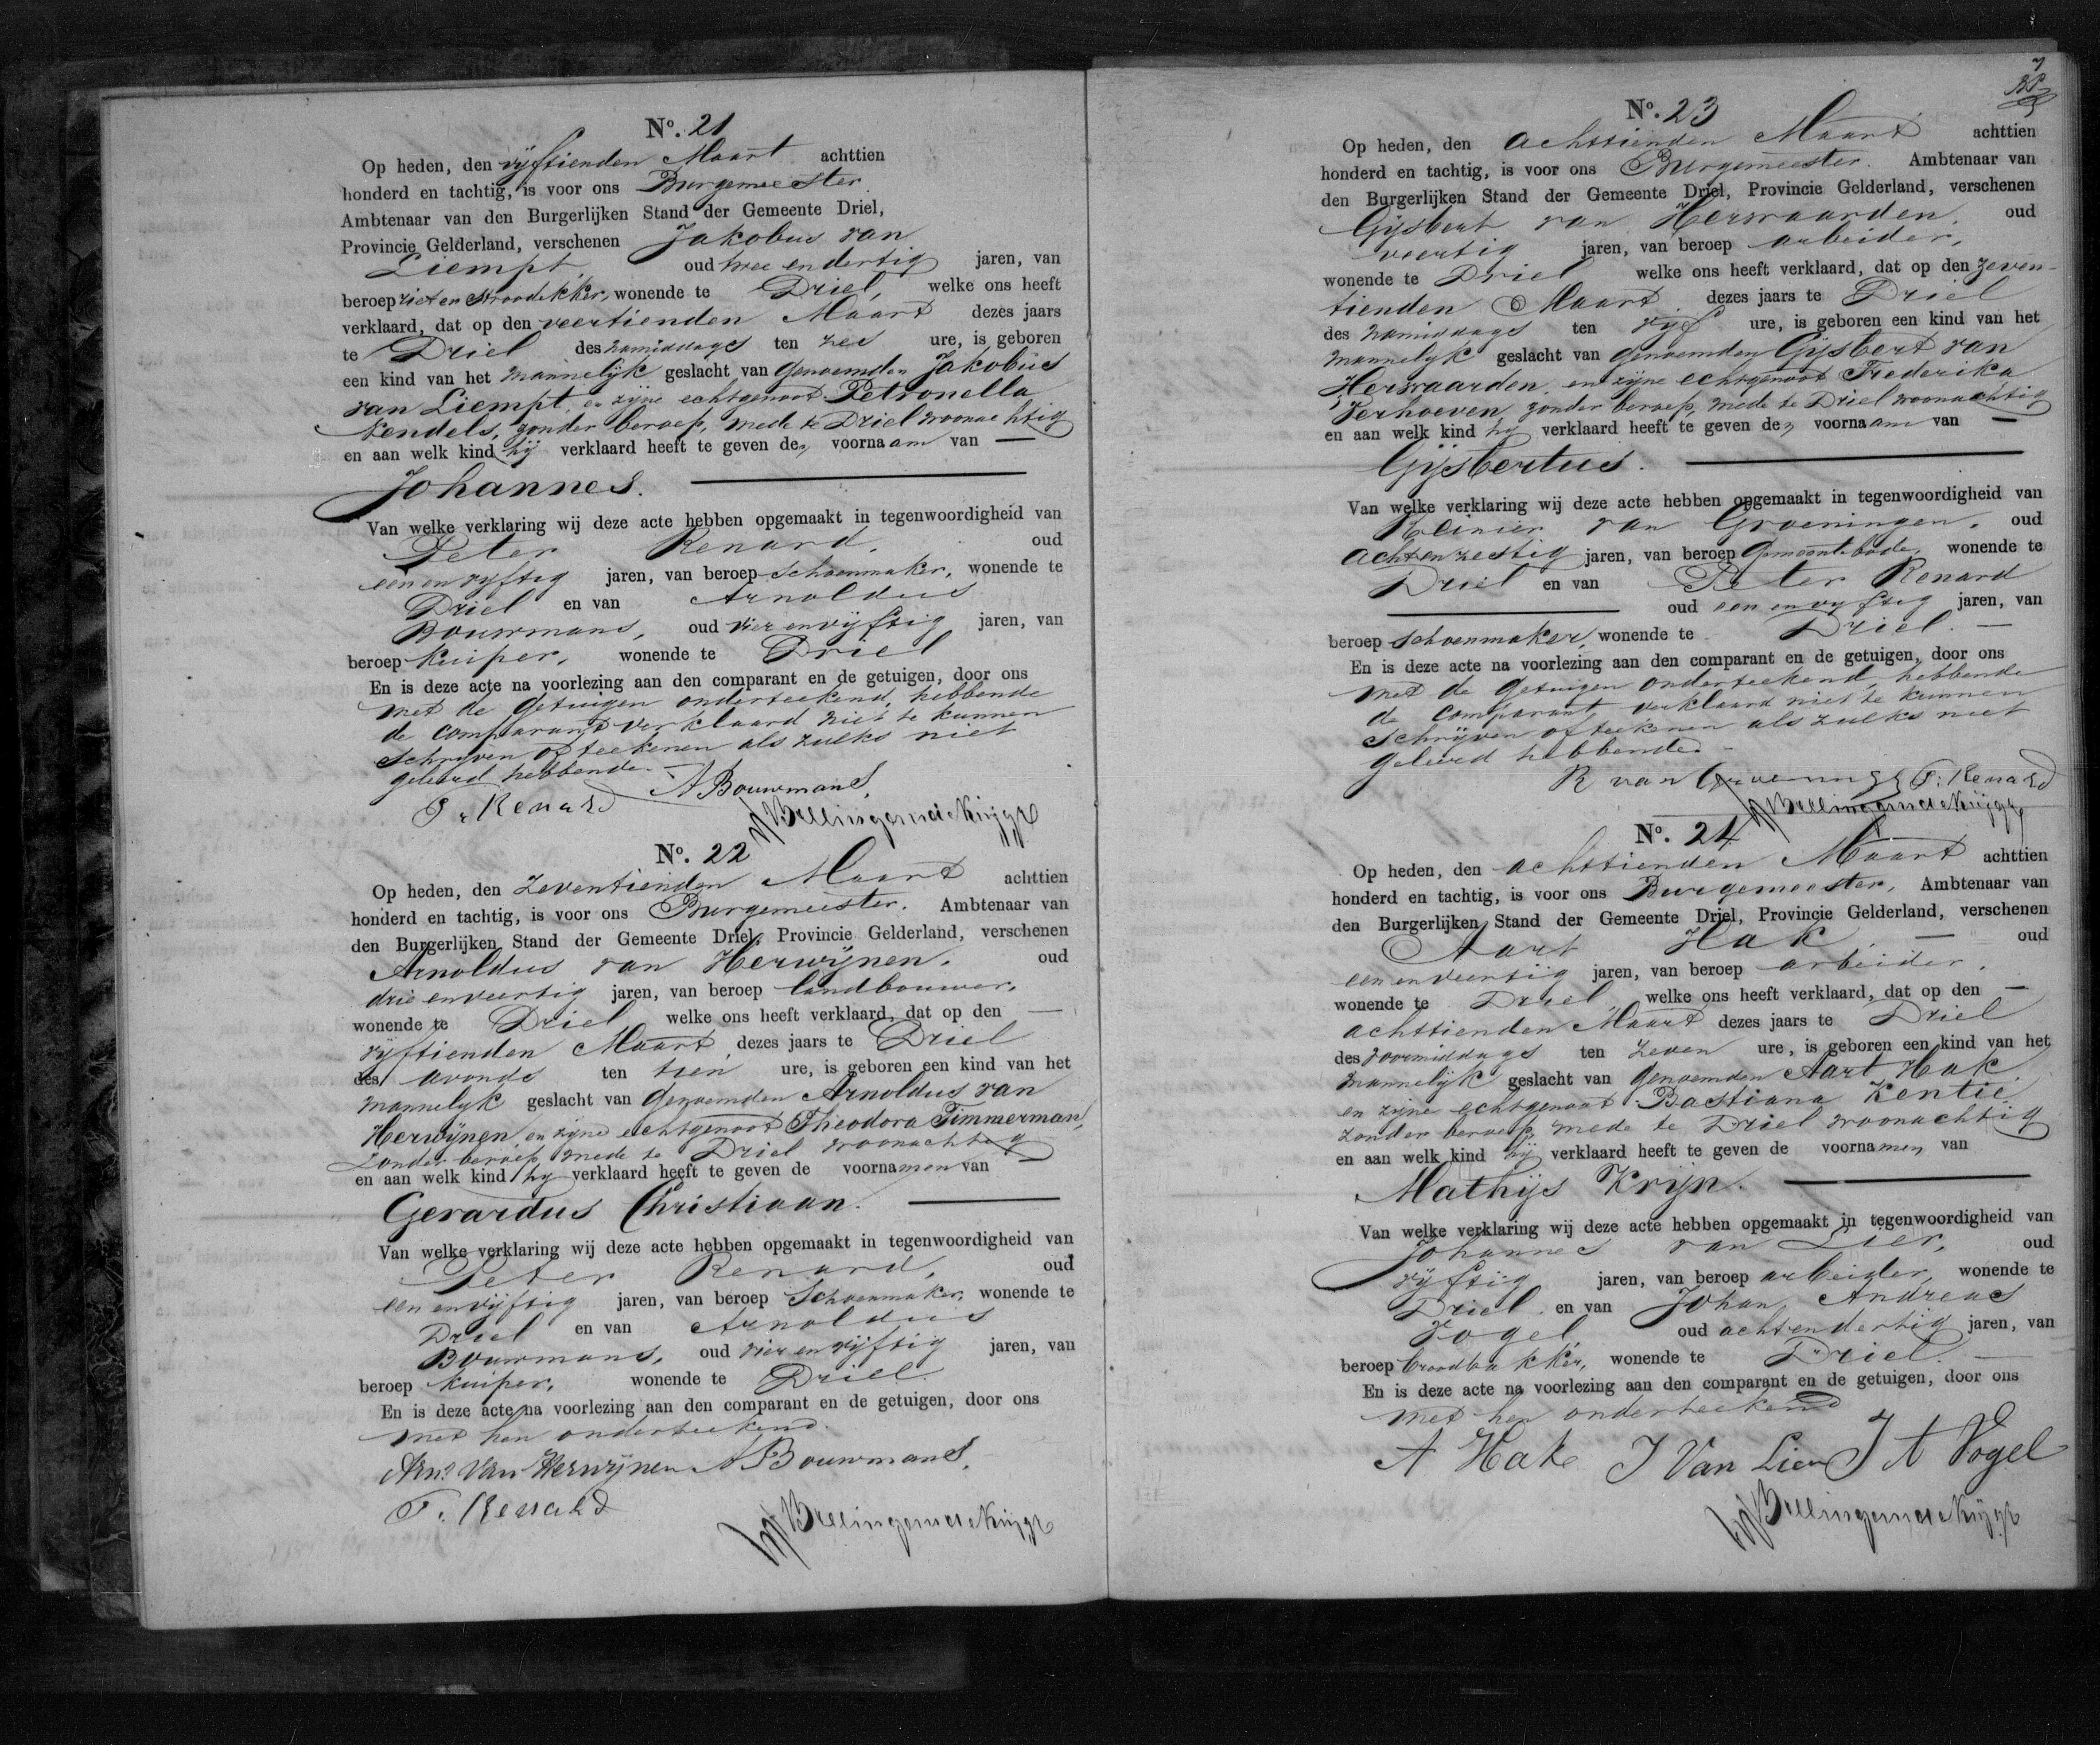 No. 21
Op heden, den vijftienden Maart achttien
honderd en tachtig, is voor ons Burgemeester
Ambtenaar van den Burgerlijken Stand der Gemeente Driel,
Provincie Gelderland, verschenen Jakobus van
Liempt, oud twee en dertig jaren, van
beroep riet en stroodekker, wonende te Driel, welke ons heeft
verklaard, dat op den veertienden Maart dezes jaars
te Driel des namiddags ten zes ure, is geboren
een kind van het mannelijk geslacht van genoemden Jakobus
van Liempt, en zijne echtgenoot Petronella
Kendels, zonder beroep, mede te Driel woonachtig
en aan welk kind hij verklaard heeft te geven den voornaam van —
Johannes.
Van welke verklaring wij deze acte hebben opgemaakt in tegenwoordigheid van
Peter Renard, oud
een en vijftig jaren, van beroep schoenmaker, wonende te
Driel en van Arnoldus
Bouwmans, oud vier en vijftig jaren, van
beroep kuiper, wonende te Driel
En is deze acte na voorlezing aan den comparant en de getuigen, door ons
met de getuigen onderteekend, hebbende
de comparant verklaard niet te kunnen
schrijven of teekenen als zulks niet
geleerd hebbende.
P. Renard A Bouwmans,
No. 22
Op heden, den zeventienden Maart achttien
honderd en tachtig, is voor ons Burgemeester, Ambtenaar van
den Burgerlijken Stand der Gemeente Driel, Provincie Gelderland, verschenen
Arnoldus van Herwijnen, oud
drie en veertig jaren, van beroep landbouwer,
wonende te Driel welke ons heeft verklaard, dat op den —
vijftienden Maart dezes jaars te Driel
des avonds ten tien ure, is geboren een kind van het
mannelijk geslacht van genoemden Arnoldus van
Herwijnen, en zijne echtgenoot Theodora Timmerman,
zonder beroep mede te Driel woonachtig
en aan welk kind hij verklaard heeft te geven de voornamen van —
Gerardus Christiaan.
Van welke verklaring wij deze acte hebben opgemaakt in tegenwoordigheid van
Peter Renard, oud
een en vijftig jaren, van beroep Schoenmaker, wonende te
Driel en van Arnoldus
Bouwmans, oud vier en vijftig jaren, van
beroep kuiper, wonende te Driel.
En is deze acte na voorlezing aan den comparant en de getuigen, door ons
met hen onderteekend.
Arns Van Herwijnen A Bouwmans,
P. Renard
7
No. 23
Op heden, den achttienden Maart achttien
honderd en tachtig, is voor ons Burgemeester. Ambtenaar van
den Burgerlijken Stand der Gemeente Driel, Provincie Gelderland, verschenen
Gijsbert van Herwaarden, oud
veertig jaren, van beroep arbeider,
wonende te Driel welke ons heeft verklaard, dat op den zeven-
tienden Maart dezes jaars te Driel
des namiddags ten vijf ure, is geboren een kind van het
mannelijk geslacht van genoemden Gijsbert van
Herwaarden, en zijne echtgenoot Frederika
Verhoeven, zonder beroep, mede te Driel woonachtig
en aan welk kind hij verklaard heeft te geven den voornaam van —
Gijsbertus.
Van welke verklaring wij deze acte hebben opgemaakt in tegenwoordigheid van
Reinier van Groeningen, oud
acht en zestig jaren, van beroep Gemeentebode, wonende te
Driel en van Peter Renard
oud een en vijftig jaren, van
beroep schoenmaker, wonende te Driel. —
En is deze acte na voorlezing aan den comparant en de getuigen, door ons
met de getuigen onderteekend, hebbende
de comparant verklaard niet te kunnen
schrijven of teekenen als zulks niet
geleerd hebbende.
R van Groeninge P. Renard
No. 24
Op heden, den achttienden Maart achttien
honderd en tachtig, is voor ons Burgemeester, Ambtenaar van
den Burgerlijken Stand der Gemeente Driel, Provincie Gelderland, verschenen
Aart Hak, — oud
een en veertig jaren, van beroep arbeider,
wonende te Driel, welke ons heeft verklaard, dat op den —
achttienden Maart dezes jaars te Driel
des voormiddags ten zeven ure, is geboren een kind van het
mannelijk geslacht van genoemden Aart Hak
en zijne echtgenoot Bastiana Kentie
zonder beroep, mede te Driel woonachtig
en aan welk kind hij verklaard heeft te geven de voornamen van
Mathijs Krijn.
Van welke verklaring wij deze acte hebben opgemaakt in tegenwoordigheid van
Johannes van Lier, oud
vijftig jaren, van beroep arbeider, wonende te
Driel en van Johan Andreas
Vogel, oud acht en dertig jaren, van
beroep broodbakker, wonende te Driel. —
En is deze acte na voorlezing aan den comparant en de getuigen, door ons
met hen onderteekend
A Hak J Van Lier J A Vogel